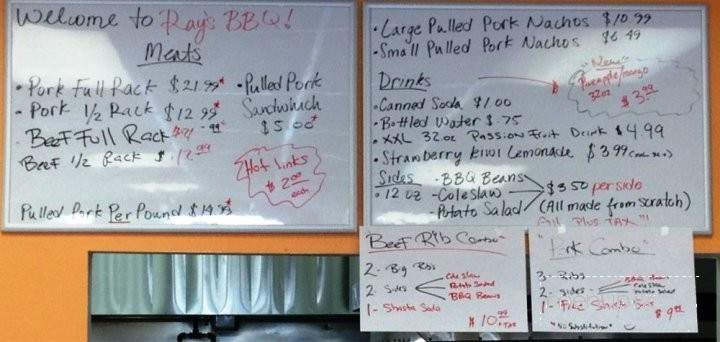 Welcome to Ray's BBQ!
Meats
• Pork Full Rack $21.99*
• Pork 1/2 Rack $12.99*
• Beef Full Rack
Beef 1/2 Rack $
• Pulled Pork
Sandwhich
$5.00*
Hot Links
$2.00
each
Pulled Pork Per Pound $14.99*
• Large Pulled Pork Nachos $10.99
• Small Pulled Pork Nachos $6.49
Drinks
"New"
Pineapple/mango
32oz
$3.99
• Canned Soda $1.00
• Bottled Water $.75
• XXL 32oz Passion Fruit Drink $4.99
• Strawberry Kiwi Lemonade $3.99
Sides
• 12 oz
- BBQ Beans
- Coleslaw
- Potato Salad
$3.50 per side
(All made from scratch)
All Plus TAX"!!
Beef Rib Combo"
2- Big Ribs
2- Sides
Cole Slaw
Potato Salad
BBQ Beans
1- Shasta Soda
$10.99 + TAX
"Pork Combo"
3- Ribs
2- sides
BBQ Beans
Cole Slaw
Potato Salad
1- Free Shasta
"No Substitution"